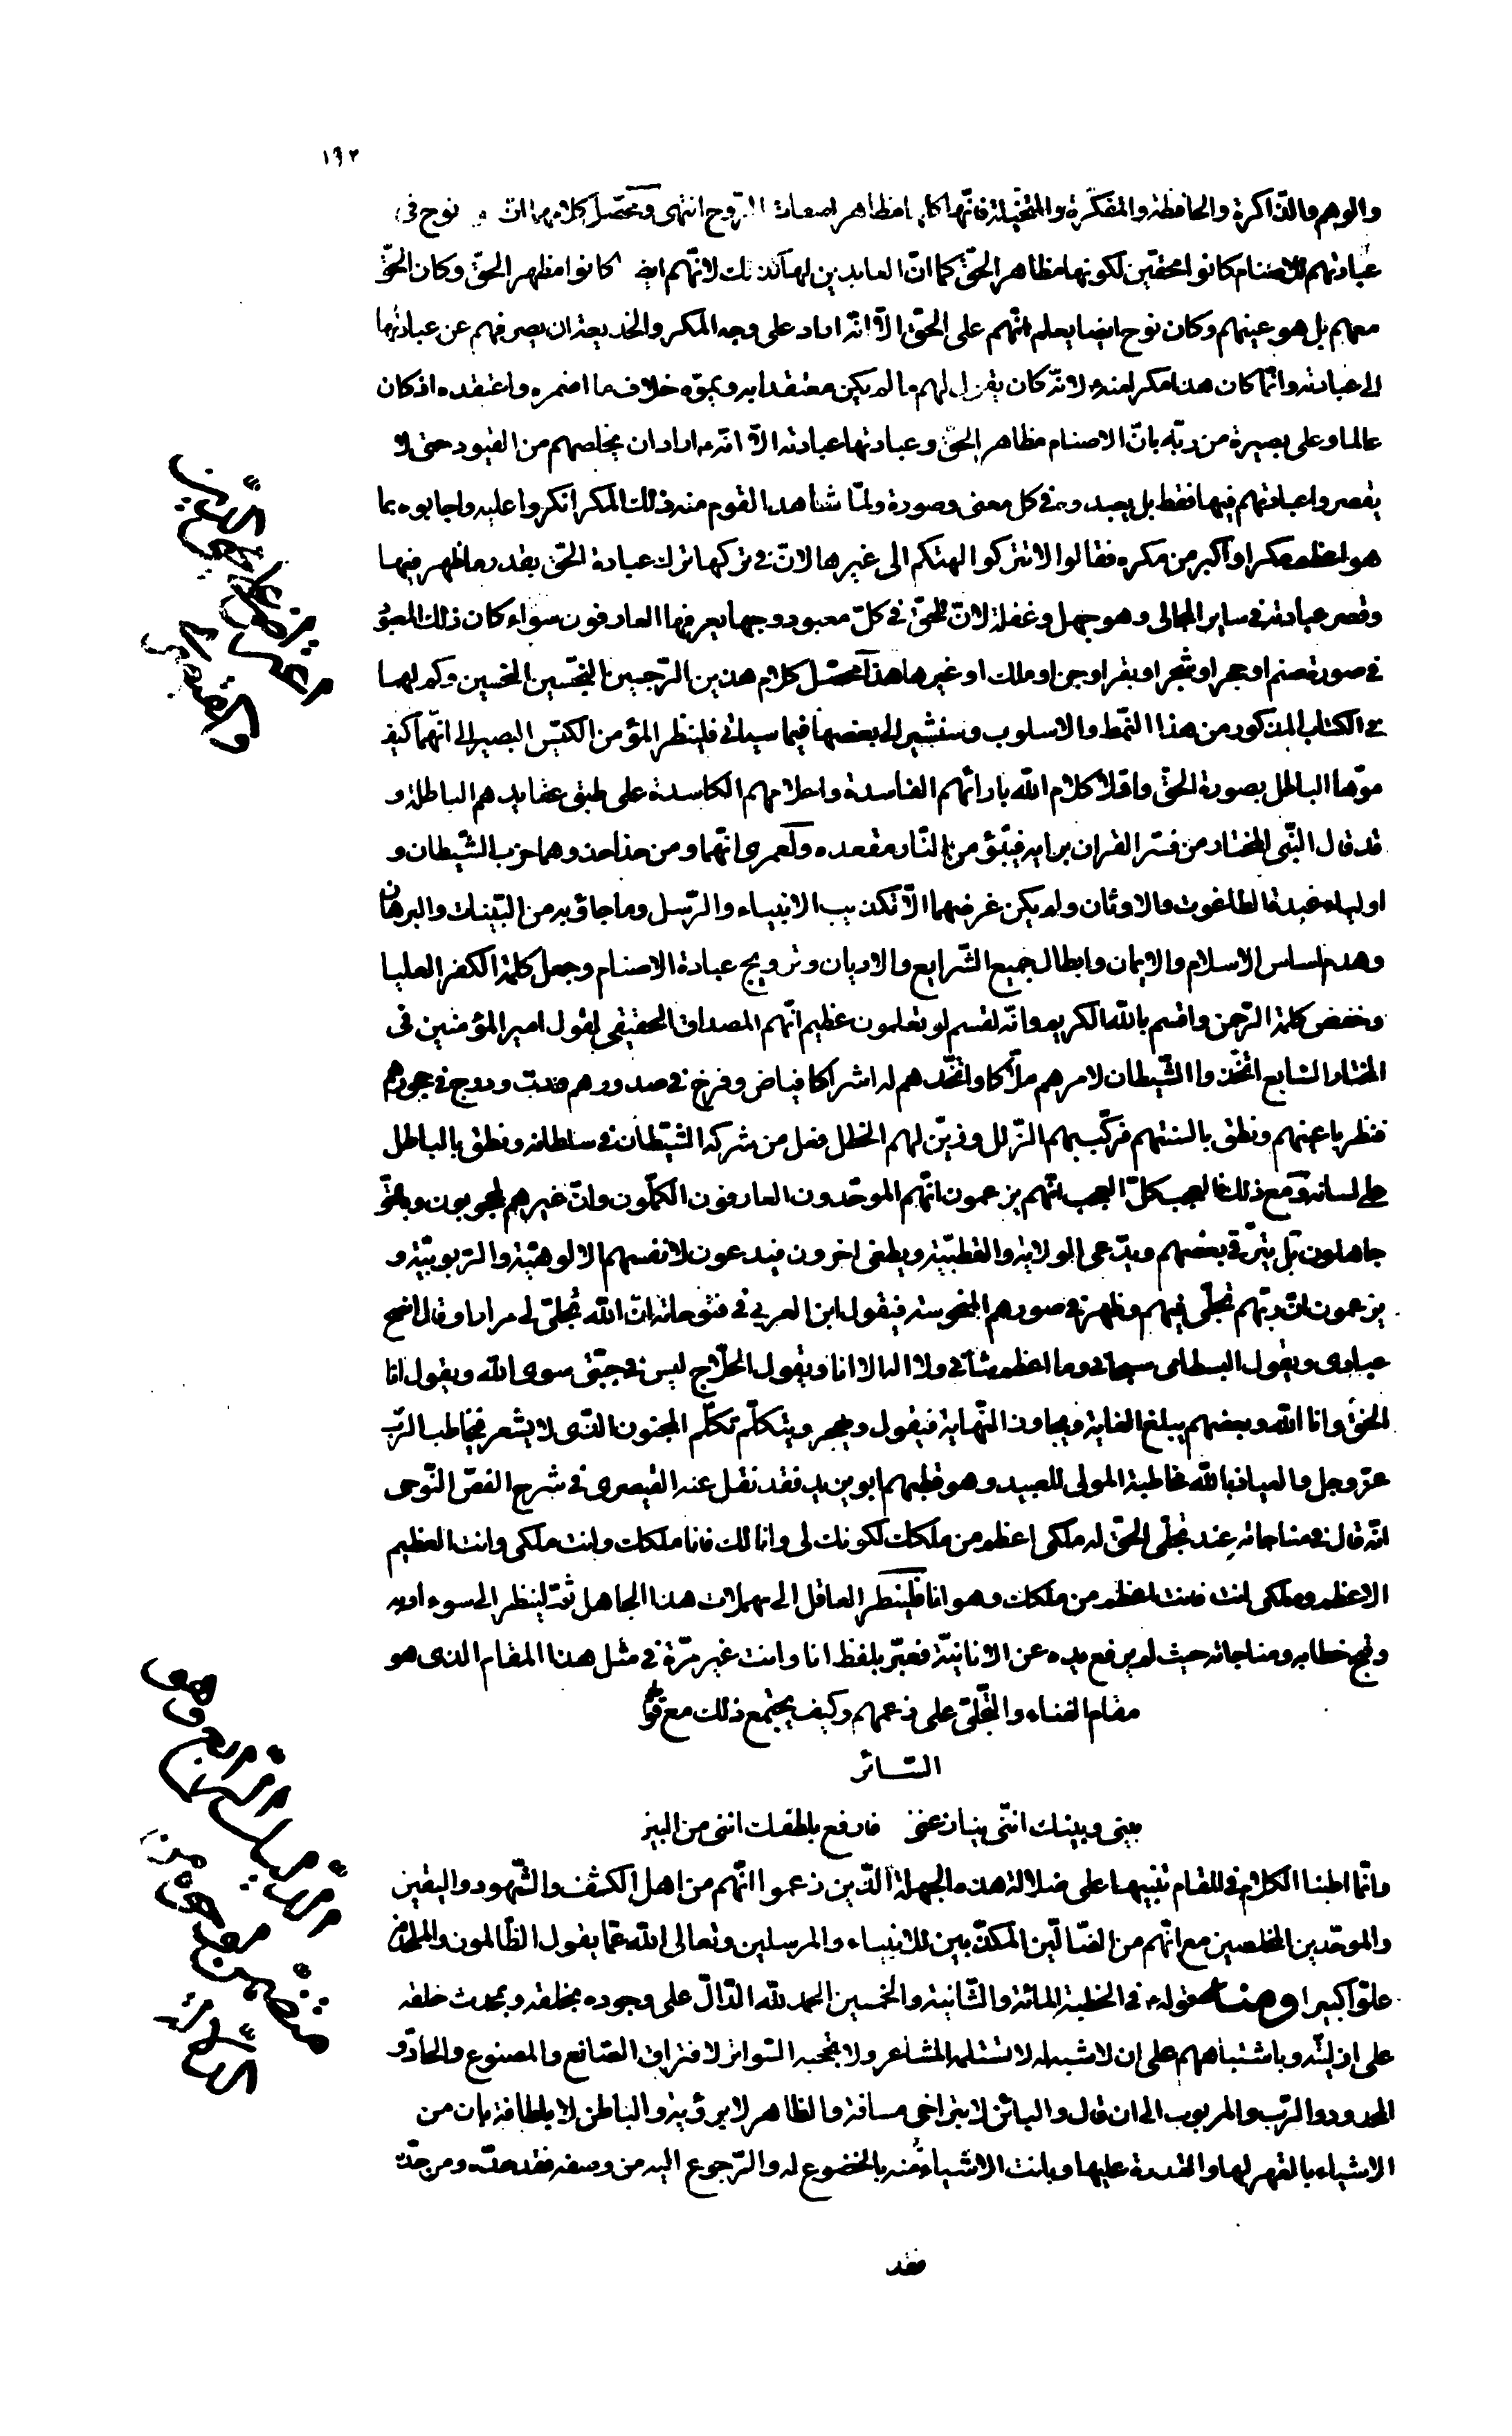 ١٦٢
والوهم والذاكرة والحافظة والمفكرة والمتخيلة فانها كلها مظاهر لصفات الروح انتهى ومحصل كلامهما ان نوح فى
عبادتهم للاصنام كانوا محقين لكونها مظاهر الحق كما ان العابدين لها كذلك لانهم ايض كانوا مظهر الحق وكان الحق
معهم بل هو عينهم وكان نوح ايضا يعلم انهم على الحق الا انه اراد على وجه المكر والخديعة ان يصرفهم عن عبادتها
الى عبادته وانما كان هذا مكرا منه لانه كان يقول لهم ما لم يكن معتقدا به ويموه خلاف ما اضمره واعتقده اذ كان
عالما وعلى بصيرة من ربه بان الاصنام مظاهر الحق وعبادتها عبادته الا انه اراد ان يخلصهم من القيود حتى لا
يقصروا عبادتهم فيها فقط بل يعبدوه فى كل معنى وصورة ولما شاهد القوم منه ذلك المكر انكروا عليه واجابوه بما
هو اعظم مكرا واكبر من مكره فقالوا لا تتركوا الهتكم الى غيرها لان فى تركها ترك عبادة الحق بقدر ما ظهر فيها
وقصر عبادته فى ساير المجالى وهو جهل وغفلة لان للحق فى كل معبود وجها يعرفها العارفون سواء كان ذلك المعبود
فى صورة صنم او حجر او شجر او بقر او جن او ملك او غيرها هذا محصل كلام هذين الرجسين النجسين النحسين وكم لهما
فى الكتاب المذكور من هذا النمط والاسلوب وسنشير الى بعضها فيما سياتى فلينظر المؤمن الكيس البصير الى انهما كيف
موها الباطل بصورة الحق واولا كلام الله بارائهم الفاسدة واحلامهم الكاسدة على طبق عقايدهم الباطلة و
قد قال النبى المختار من فسر القران برايه فليتبؤ من النار مقعده ولعمرى انهما ومن حذا حذوهما حزب الشيطان و
اولياء عبدة الطاغوت والاوثان ولم يكن غرضهما الا تكذيب الانبياء والرسل وما جاؤ به من البينات والبرهان
وهدم اساس الاسلام والايمان وابطال جميع الشرايع والاديان وترويج عبادة الاصنام وجعل كلمة الكفر العليا
وخفض كلمة الرحمن واقسم بالله الكريم وانه لقسم لو تعلمون عظيم انهم المصداق الحقيقى لقول امير المؤمنين فى
المختار السابع اتخذوا الشيطان لامرهم ملاكا واتخذهم له اشراكا فباض وفرخ فى صدورهم ودب ودرج فى حجورهم
فنظر باعينهم ونطق بالسنتهم فركب بهم الزلل وزين لهم الخطل فعل من شركه الشيطان فى سلطانه ونطق بالباطل
على لسانه ومع ذلك فالعجب كل العجب انهم يزعمون انهم الموحدون العارفون الكملون وان غيرهم لمحجوبون وبالحق
جاهلون بل يترقى بعضهم ويدعى الولاية والقطبية ويطغى اخرون فيدعون لانفسهم الالوهية والربوبية و
يزعمون ان ربهم تجلى فيهم وظهر فى صورهم المنحوسة فيقول ابن العربي فى فتوحاته ان الله تجلى لى مرارا وقال انصح
عبادى ويقول البسطامى سبحانى وما اعظم شأنى ولا اله الا انا ويقول الحلاج ليس فى جبتى سوى الله ويقول انا
الحق وانا الله وبعضهم يبلغ الغاية ويجاوز النهاية فيقول ويهجر ويتكلم تكلم المجنون الذى لا يشعر فيخاطب الرب
عز وجل والعياذ بالله مخاطبة المولى للعبيد وهو قطبهم ابو يزيد فقد نقل عنه القيصرى فى شرح الفص النوحى
انه قال فى مناجاته عند تجلى الحق له ملكى اعظم من ملكك لكونك لى وانا لك فانا ملكك وانت ملكى وانت العظيم
الاعظم وملكى انت فانت اعظم من ملكك وهو انا فلينظر العاقل الى مهملات هذا الجاهل ثم لينظر الى سوء ادبه
وقبح خطابه ومناجاته حيث لم يرفع يده عن الانانية فعبر بلفظ انا وانت غير مرة فى مثل هذا المقام الذى هو
مقام الفناء والتجلى على زعمهم وكيف يجتمع ذلك مع قول
الشاعر
بينى وبينك انيى ينازعنى فارفع بلطفك انيى من البين
وانما اطنبنا الكلام فى المقام تنبيها على ضلالة هذه الجهلة الذين زعموا انهم من اهل الكشف والشهود واليقين
والموحدين المخلصين مع انهم من الضالين المكذبين للانبياء والمرسلين وتعالى الله عما يقول الظالمون والملحدون
علوا كبيرا ومنها قوله فى الخطبة المائة والثانية والخمسين الحمد لله الدال على وجوده بخلقه وبمحدث خلقه
على ازليته وباشتباههم على ان لا شبه له لا تستلمه المشاعر ولا تحجبه السواتر لافتراق الصانع والمصنوع والحاد و
المحدود والرب والمربوب الى ان قال والبائن لا بتراخى مسافة والظاهر لا برؤية والباطن لا بلطافة بان من
الاشياء بالقهر لها والقدرة عليها وبانت الاشياء منه بالخضوع له والرجوع اليه من وصفه فقد حده ومن حده
فقد